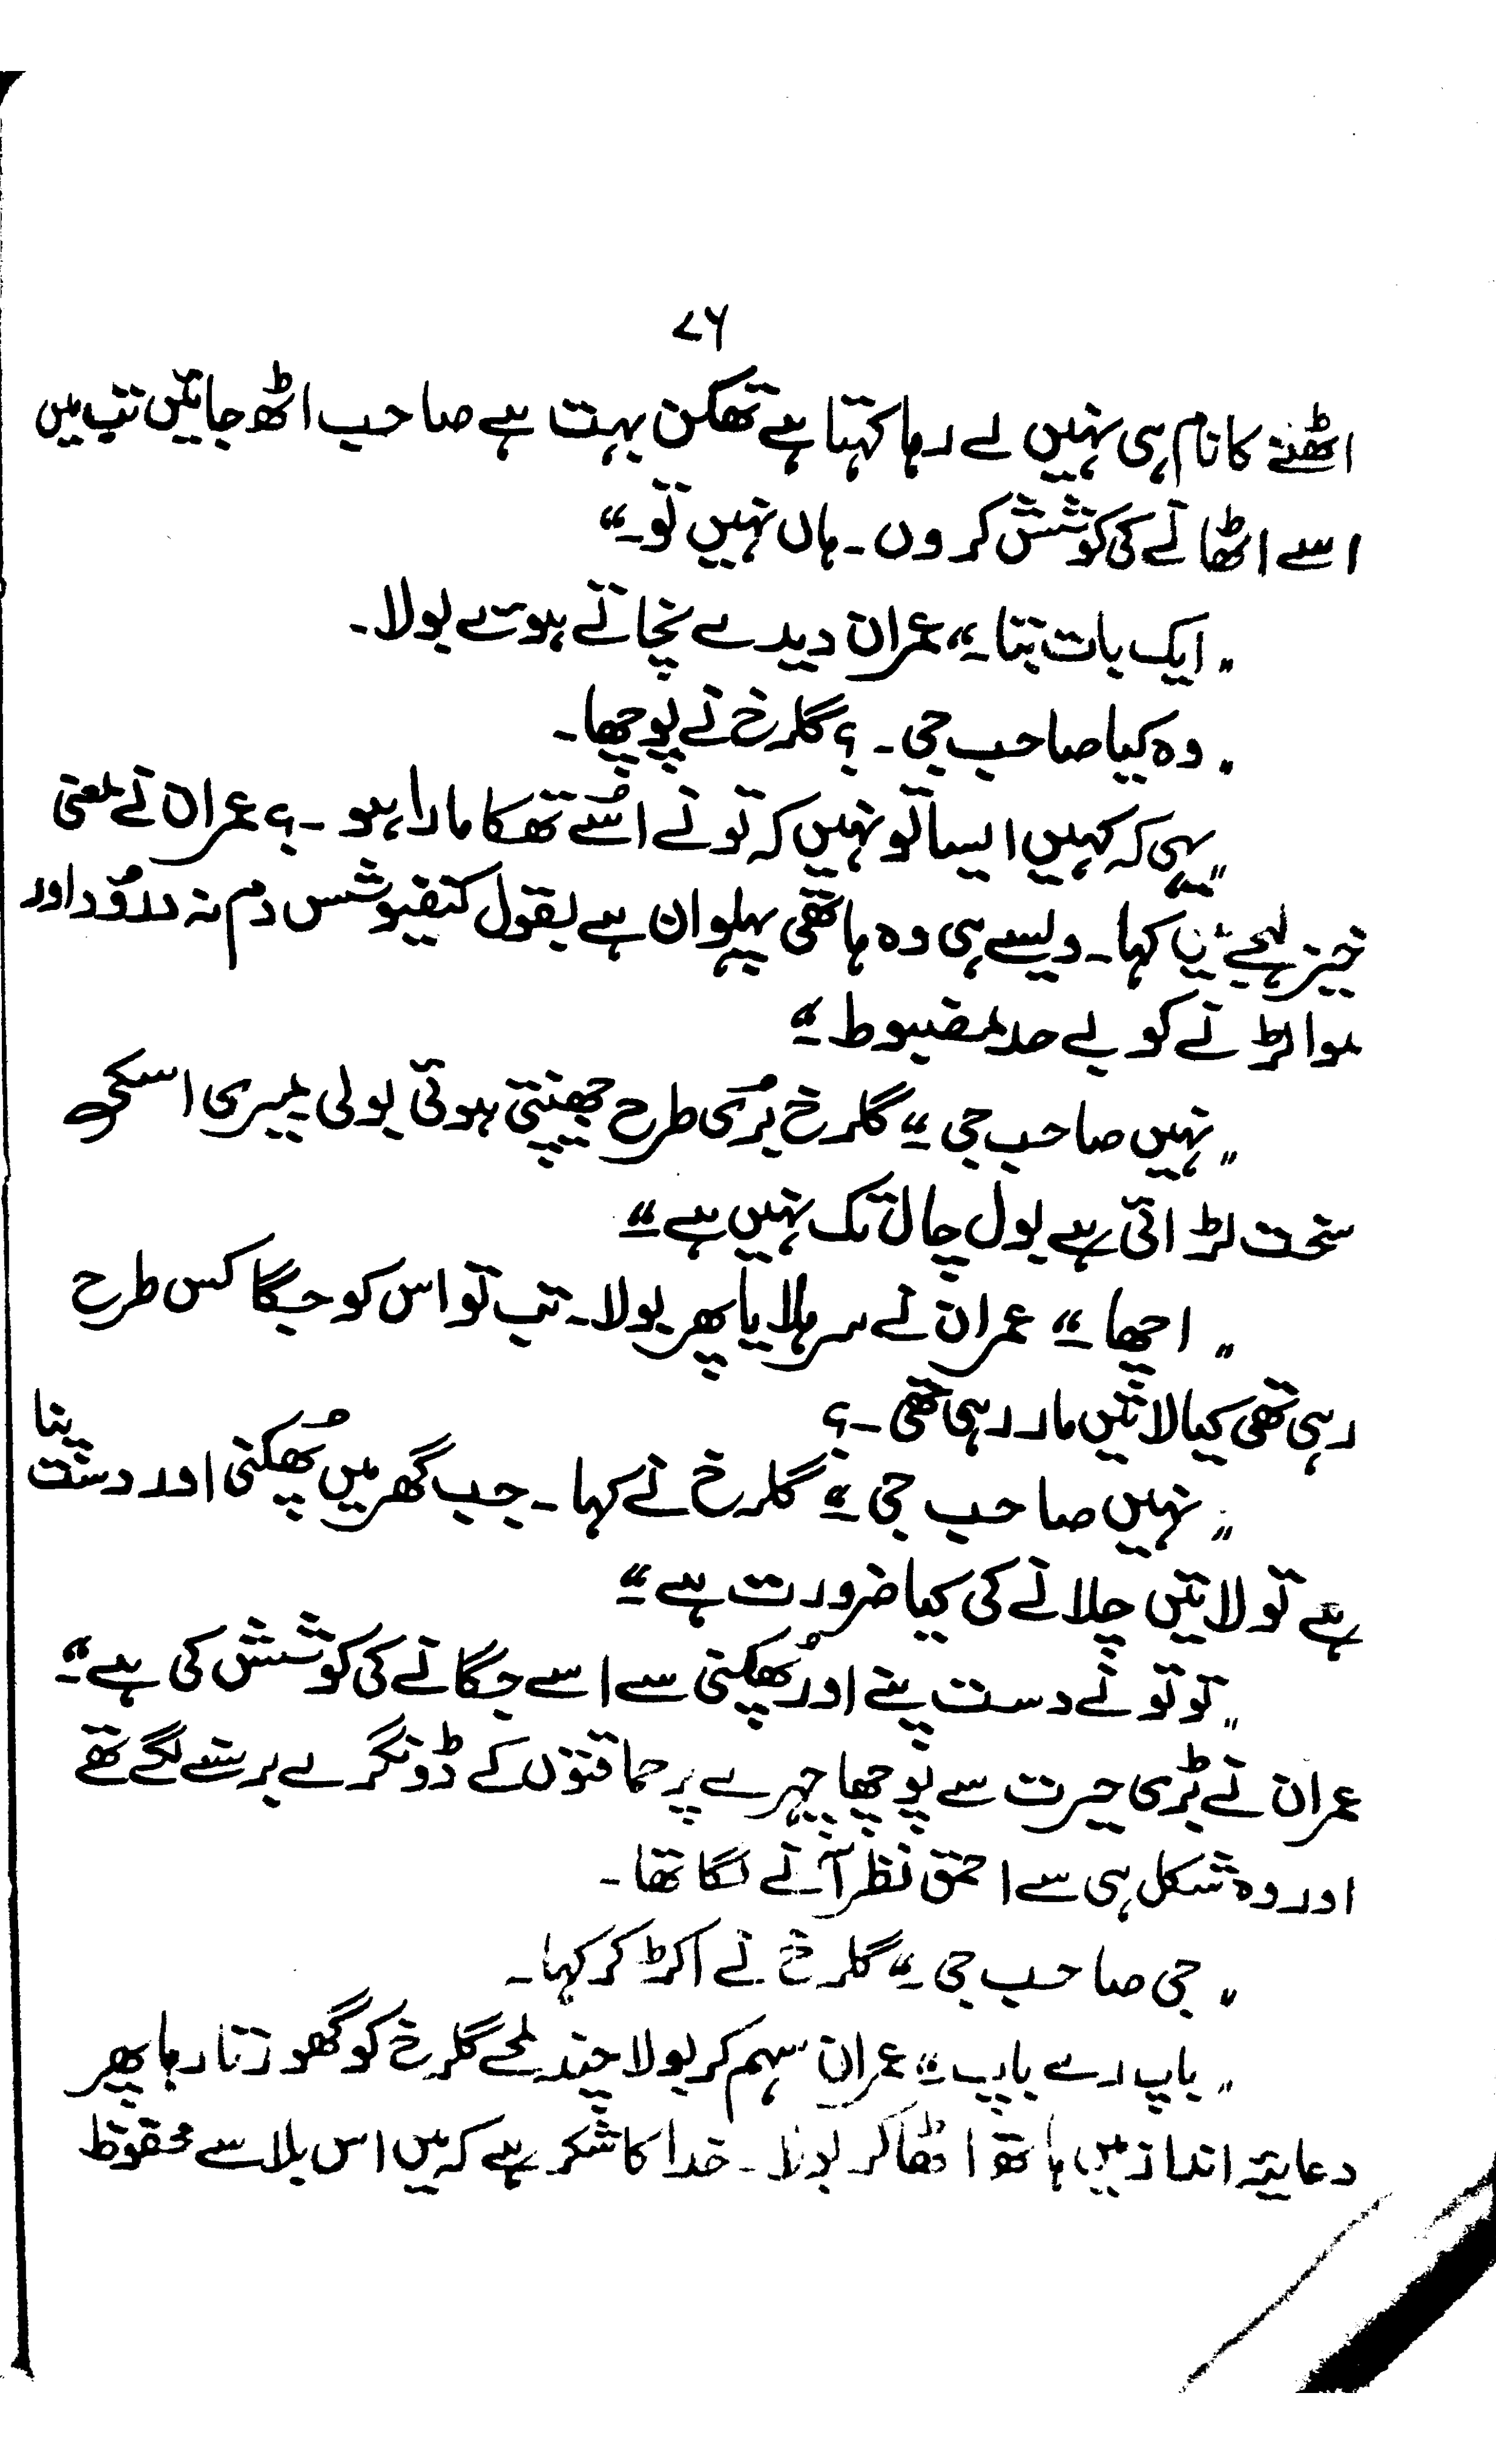 ۷۶
اٹھنے کا نام ہی نہیں لے رہا کہتا ہے تھکن بہت ہے صاحب اٹھ جائیں تب میں
اسے اٹھانے کی کوشش کروں۔ ہاں نہیں تو۔"
"ایک بات بتا۔" عمران دیدے نچاتے ہوئے بولا۔
"وہ کیا صاحب جی۔؟ گلرخ نے پوچھا۔
"یہی کہ کہیں ایسا تو نہیں کہ تو نے اُسے تھکا مارا ہو۔؟ عمران نے معنی
خیز لہجے میں کہا۔ ویسے ہی وہ ہاتھی پہلوان ہے بقول کنفیوشس دم نہ درُود اور
ہوا لڑنے کو بے حد مضبوط۔"
"نہیں صاحب جی۔" گلرخ بُری طرح جھینپتی ہوئی بولی میری اسکی
سخت لڑائی ہے بول چال تک نہیں ہے۔"
"اچھا۔" عمران نے سر ہلایا پھر بولا۔ تب تو اس کو جگا کس طرح
رہی تھی کیا لاتیں مار رہی تھی۔؟
"نہیں صاحب جی۔" گلرخ نے کہا۔ جب گھر میں پُھکنی اور دست پنا
ہے تو لاتیں چلانے کی کیا ضرورت ہے۔"
"تو تو نے دست پنے اور پُھکنی سے اسے جگانے کی کوشش کی ہے۔"
عمران نے بڑی حیرت سے پوچھا چہرے پر حماقتوں کے ڈونگرے برسنے لگے تھے
اور وہ شکل ہی سے احمق نظر آنے لگا تھا۔
"جی صاحب جی۔" گلرخ نے اکڑ کر کہا۔
"باپ رے باپ۔" عمران سہم کر بولا چند لمحے گلرخ کو گھورتا رہا پھر
دعایئہ انداز میں ہاتھ اٹھا کر بولا۔ خدا کا شکر ہے کہ میں اس بلا سے محفوظ